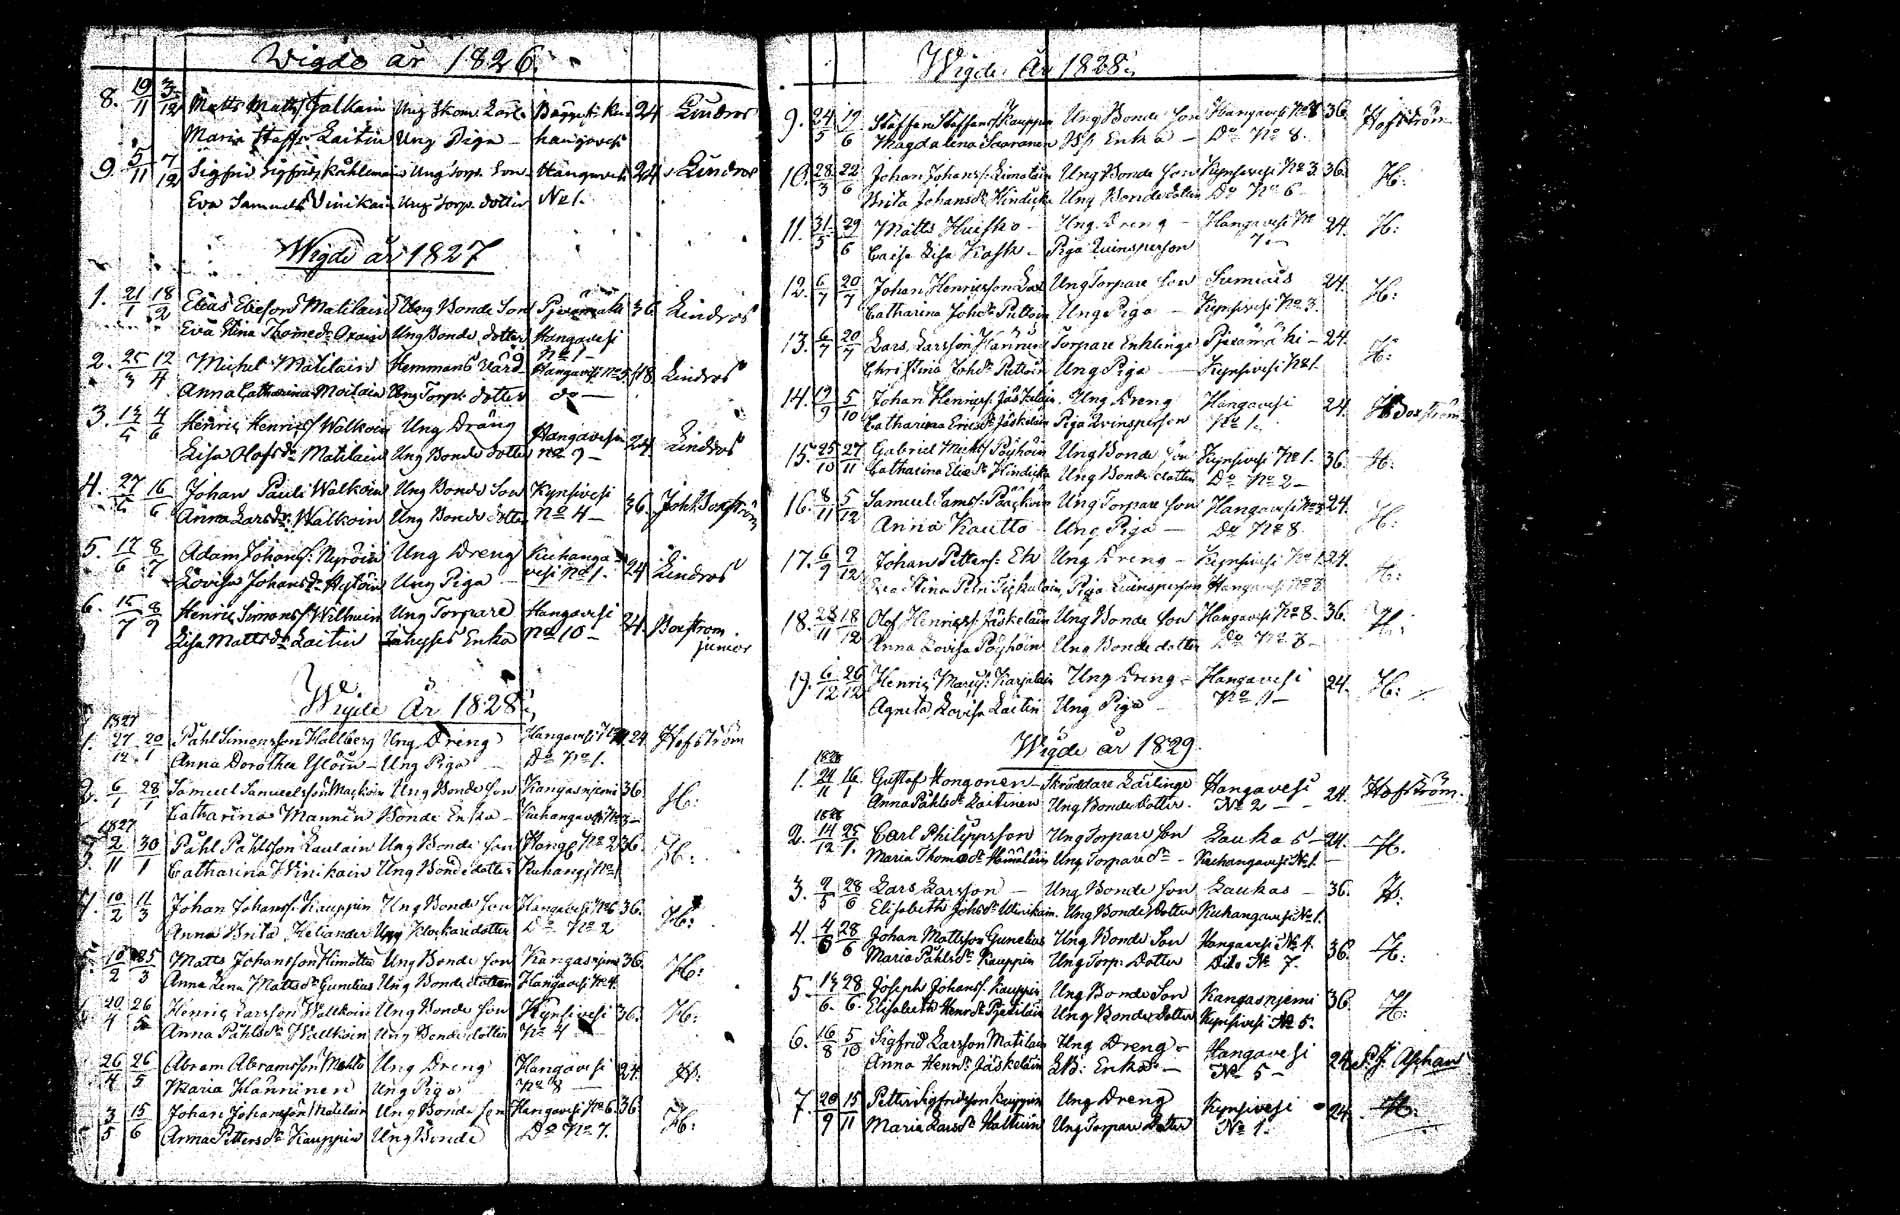 Wigde år 1826.
8. 19/11 3/12 Matts Matts. Jalkain Ung Skom. Lärl. 24 Lindros
Maria Staffs. Laitin Ung Piga - hangavesi
9. 5/11 7/12 Sigfrid Sigfrids. Ung Torp. Son Hangavesi 24 Lindros
Eva Samuels. Vinikain Ung Torp. dotter No 1.
Wigde år 1827
1. 21/1 18/2 Elias Eliesons Matilain Ung Bonde Son 36 Lindros
Eva Stina Thomed. Ung Bonde dotter Hangavesi No 1-
2. 25/3 12/4 Michel Matilain Hemmans Hangavesi No 5. 48 Lindros
Anna Catharina Moilain Ung Torp. dotter do -
3. 13/5 4/6 Henric Henrics. Walkoin Ung Dräng Hangavesi 24 Lindros
Lisa Olofs dr. Matilain Ung Bonde dotter No 9 -
4. 27/5 16/6 Johan Pauls. Walkoin Ung Bonde Son Kynsivesi 36. Joh. Boxström
Anna Lars Dr. Walkoin Ung Bonde dotter No 4 -
5. 17/6 8/7 Adam Johans. Nyroin Ung Dreng Kuhanga= 24 Lindros
Lovisa Johans dr. Ung Piga - vesi No 1.
6. 15/7 8/9 Henric Simons. Wilhuin Ung Torpare Hangavesi 24. Boxstrom
Lisa Matts dr. Laitin Enka No 10 - junior
Wigde År 1828.
1827
1. 27/12 20/1 Påhl Simonsson Hallberg Ung Dreng Hangavesi 24. Hofström
Anna Dorothea Ylöin - Ung Piga - Do No 1.
2. 6/1 28/1 Samuel Samuelsson Ung Bonde Son Kangasnjemi 36 H:
Catharina Mannin Bonde Enka - Kuhangavesi No 3 -
1827
3. 2/11 30/1 Påhl Påhlsson Laulain Ung Bonde Son Hang. No 2 36. H:
Catharina Winikain Ung Bonde dotter Kuhang. No 1
4. 10/2 11/3 Johan Johans. Kauppin Ung Bonde Son Hangavesi No 6 36. H:
Anna Brita Heliander Ung Klockare dotter Do No 2
5. 10/2 25/3 Matts Johansson Himotta Ung Bonde Son Kangasnjemi 36. H:
Anna Lena Matts dr. Gunelius Ung Bonde dotter Hangavesi No 4.
6. 20/4 26/5 Henric Larsson Walkoin Ung Bonde Son Kynsivesi 36. H:
Anna Påhls dr. Walkoin Ung Bonde dotter No 4 -
26/4 26/5 Abram Abramsson Ung Dreng Hangavesi 24. H:
Maria Hänninen Ung Piga No 8 -
3/5 15/6 Johan Johansson Matilain Ung Bonde Son Hangavesi No 6. 36 H:
Anna Petters dr. Kauppin Ung Bonde Do No 7.
Wigde År 1828.
9. 24/5 19/6 Staffan Staffans. Kauppin Ung Bonde Son Hangavesi No 8 36. Hofström
Magdalena Saaranen Enka - Do No 8.
10. 28/3 22/6 Johan Johans. Ung Bonde Son Kynsivesi No 3. 36. H:
Brita Johans dr. Hindrik Ung Bonde dotter Do No 6 -
11. 31/5 29/6 Matts Huisko - Ung Dreng - Hangavesi No 24. H:
Caisa Lisa Kask - Piga Quinsperson 7 -
12. 6/7 20/7 Johan Henricsson Ung Torpare Son Sumiais 24. H:
Catharina Joh. dr. Ung Piga - Kynsivesi No 3.
13. 6/7 20/7 Lars Larsson Hännin Torpare Enkling Pjexämäki - 24. H:
Christina Joh. dr. Ung Piga - Kynsivesi No 1.
14. 19/9 5/10 Johan Henrics. Jäskelain Ung Dreng Hangavesi 24. H Boxström
Catharina Erics dr. Jäskelain Piga Qvinsperson No 1.
15. 25/10 27/11 Gabriel Michs. Pöyhöin Ung Bonde Son Kynsivesi No 1. 36. H:
Catharina Elias dr. Hindrik Ung Bonde dotter Do No 2 -
16. 8/11 5/12 Samuel Sams. Ung Torpare Son Hangavesi No 24. H:
Anna Kautto Ung Piga - Do No 8.
17. 6/9 9/12 Johan Petters. Ek Ung Dreng - Kynsivesi No 1. 24. H:
Eva Stina Piga Quinsperson Hangavesi No 8.
18. 28/11 18/12 Olof Henrics. Jäskelain Ung Bonde Son Hangavesi No 8 - 36. H:
Anna Lovisa Pöyhöin Ung Bonde dotter Do No 8 -
19. 6/12 26/12 Henric Karjalain Ung Dreng - Hangavesi 24. H:
Agneta Lovisa Laitin Ung Piga - No 11 -
Wigde år 1829.
1828
1. 24/11 16/1 Gustof Hongonen - Skräddare Lärlinge Hangavesi 24. Hofström.
Anna Påhls dr. Laitinen Ung Bonde Dotter. No 2 -
1828
2. 14/12 25/1. Carl Philippsson Ung Torpare Son Laukas - 24. H.
Maria Thomas dr. Hämäläin Ung Torpare dr. - Kuhangavesi No 1.
3. 9/5 28/6 Lars Larsson - Ung Bonde Son Laukas - 36. H:
Elisabeth Johs dr. Winikain. Ung Bonde Dotter Kuhangavesi No 1.
4. 4/6 28/6 Johan Mattsson Gunelius Ung Bonde Son Hangavesi No 4. 36. H:
Maria Påhls dr. Kauppin Ung Torp. Dotter Dito No 7.
5. 13/6. 28/6. Joseph Johans. Kauppin Ung Bonde Son Kangasnjemi 36. H:
Elisabeth Henr. dr. Ung Bonde Dotter Kynsivesi No 5.
6. 16/8 5/10 Sigfrid Larsson Matilain Ung Dreng - Hangavesi 24
Anna Henr. dr. Jäskelain Enka - No 5 -
7. 20/9 15/11 Petter Sigfridsson Kauppin Ung Dreng Kynsivesi 24 H:
Maria Lars dr. Ung Torpare Dotter No 1.